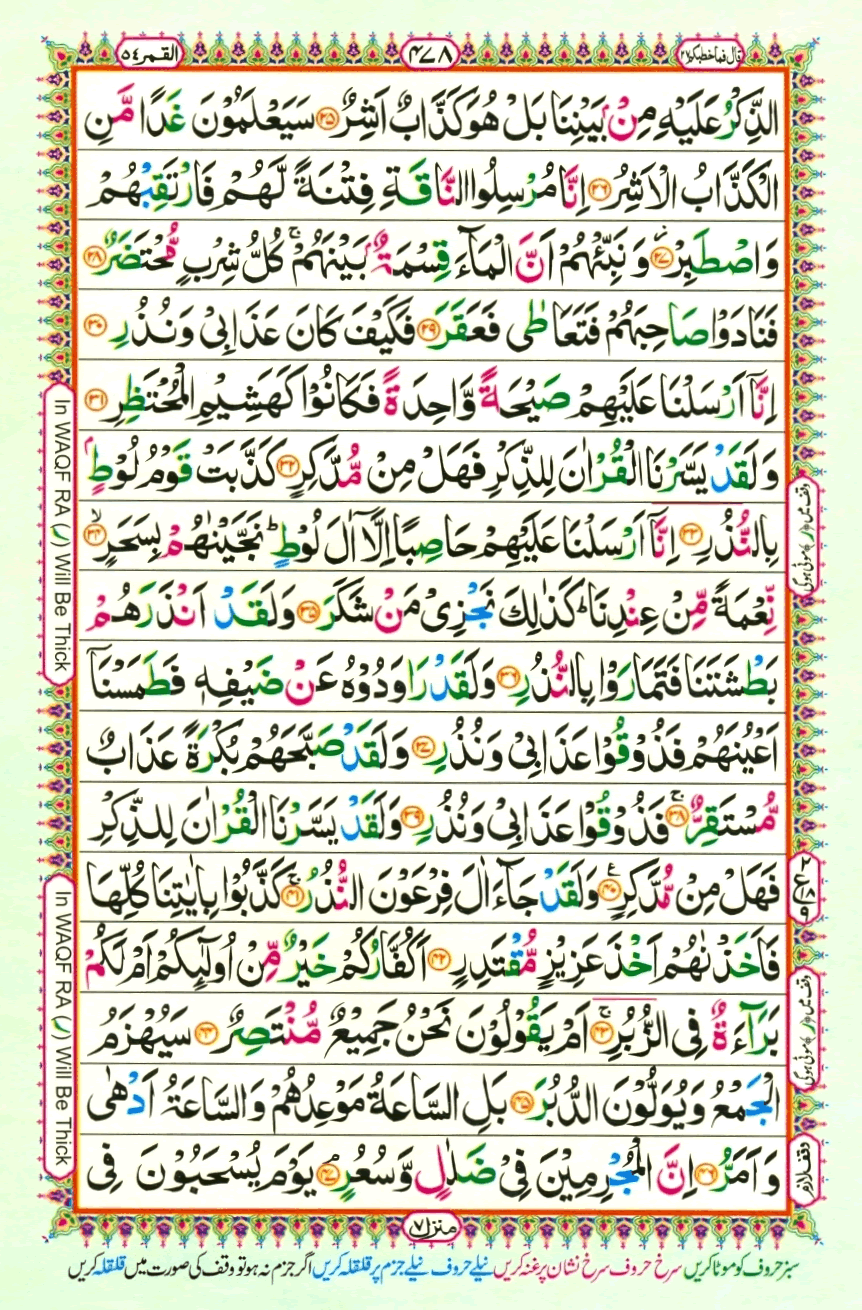 قال فما خطبكم ٢٧
٤٧٨
القمر ٥٤
الذِّكْرُ عَلَيْهِ مِنْۢ بَيْنِنَا بَلْ هُوَ كَذَّابٌ اَشِرٌ ۝٢٥ سَيَعْلَمُوْنَ غَدًا مَّنِ
الْكَذَّابُ الْاَشِرُ ۝٢٦ اِنَّا مُرْسِلُوا النَّاقَةِ فِتْنَةً لَّهُمْ فَارْتَقِبْهُمْ
وَاصْطَبِرْ ۝٢٧ وَنَبِّئْهُمْ اَنَّ الْمَآءَ قِسْمَةٌۢ بَيْنَهُمْ ۚ كُلُّ شِرْبٍ مُّحْتَضَرٌ ۝٢٨
فَنَادَوْا صَاحِبَهُمْ فَتَعَاطٰى فَعَقَرَ ۝٢٩ فَكَيْفَ كَانَ عَذَابِيْ وَنُذُرِ ۝٣٠
اِنَّآ اَرْسَلْنَا عَلَيْهِمْ صَيْحَةً وَّاحِدَةً فَكَانُوْا كَهَشِيْمِ الْمُحْتَظِرِ ۝٣١
وَلَقَدْ يَسَّرْنَا الْقُرْاٰنَ لِلذِّكْرِ فَهَلْ مِنْ مُّدَّكِرٍ ۝٣٢ كَذَّبَتْ قَوْمُ لُوْطٍۢ
بِالنُّذُرِ ۝٣٣ اِنَّآ اَرْسَلْنَا عَلَيْهِمْ حَاصِبًا اِلَّآ اٰلَ لُوْطٍ ؕ نَجَّيْنٰهُمْ بِسَحَرٍ ۝٣٤
نِّعْمَةً مِّنْ عِنْدِنَا ؕ كَذٰلِكَ نَجْزِيْ مَنْ شَكَرَ ۝٣٥ وَلَقَدْ اَنْذَرَهُمْ
بَطْشَتَنَا فَتَمَارَوْا بِالنُّذُرِ ۝٣٦ وَلَقَدْ رَاوَدُوْهُ عَنْ ضَيْفِهٖ فَطَمَسْنَآ
اَعْيُنَهُمْ فَذُوْقُوْا عَذَابِيْ وَنُذُرِ ۝٣٧ وَلَقَدْ صَبَّحَهُمْ بُكْرَةً عَذَابٌ
مُّسْتَقِرٌّ ۝٣٨ فَذُوْقُوْا عَذَابِيْ وَنُذُرِ ۝٣٩ وَلَقَدْ يَسَّرْنَا الْقُرْاٰنَ لِلذِّكْرِ
فَهَلْ مِنْ مُّدَّكِرٍ ۝٤٠ وَلَقَدْ جَآءَ اٰلَ فِرْعَوْنَ النُّذُرُ ۝٤١ كَذَّبُوْا بِاٰيٰتِنَا كُلِّهَا
فَاَخَذْنٰهُمْ اَخْذَ عَزِيْزٍ مُّقْتَدِرٍ ۝٤٢ اَكُفَّارُكُمْ خَيْرٌ مِّنْ اُولٰٓئِكُمْ اَمْ لَكُمْ
بَرَآءَةٌ فِي الزُّبُرِ ۝٤٣ اَمْ يَقُوْلُوْنَ نَحْنُ جَمِيْعٌ مُّنْتَصِرٌ ۝٤٤ سَيُهْزَمُ
الْجَمْعُ وَيُوَلُّوْنَ الدُّبُرَ ۝٤٥ بَلِ السَّاعَةُ مَوْعِدُهُمْ وَالسَّاعَةُ اَدْهٰى
وَاَمَرُّ ۝٤٦ اِنَّ الْمُجْرِمِيْنَ فِيْ ضَلٰلٍ وَّسُعُرٍ ۝٤٧ يَوْمَ يُسْحَبُوْنَ فِي
In WAQF RA (ر) Will Be Thick
In WAQF RA (ر) Will Be Thick
وقف میں (ر) موٹی ہوگی
٢
ع
١٨
٩
وقف میں (ر) موٹی ہوگی
وقف لازم
منزل ٧
سبز حروف کو موٹا کریں سرخ حروف سرخ نشان پر غنہ کریں نیلے حروف نیلے جزم پر قلقلہ کریں اگر جزم نہ ہو تو وقف کی صورت میں قلقلہ کریں